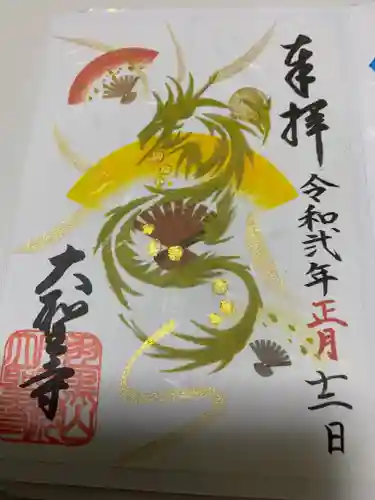 奉拝
令和弐年正月十二日
大聖寺